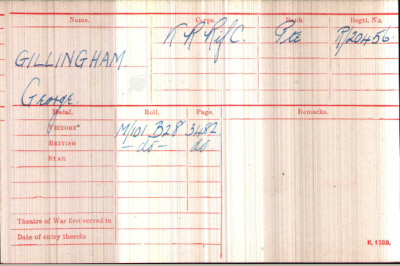 Name. Corps. Rank. Regtl. No.
GILLINGHAM. K R Rif C. Pte R/20456.
George.
Medal. Roll. Page. Remarks.
VICTORY* M/101 B28 3482
BRITISH —do— do
STAR
Theatre of War first served in
Date of entry therein
K. 1380.